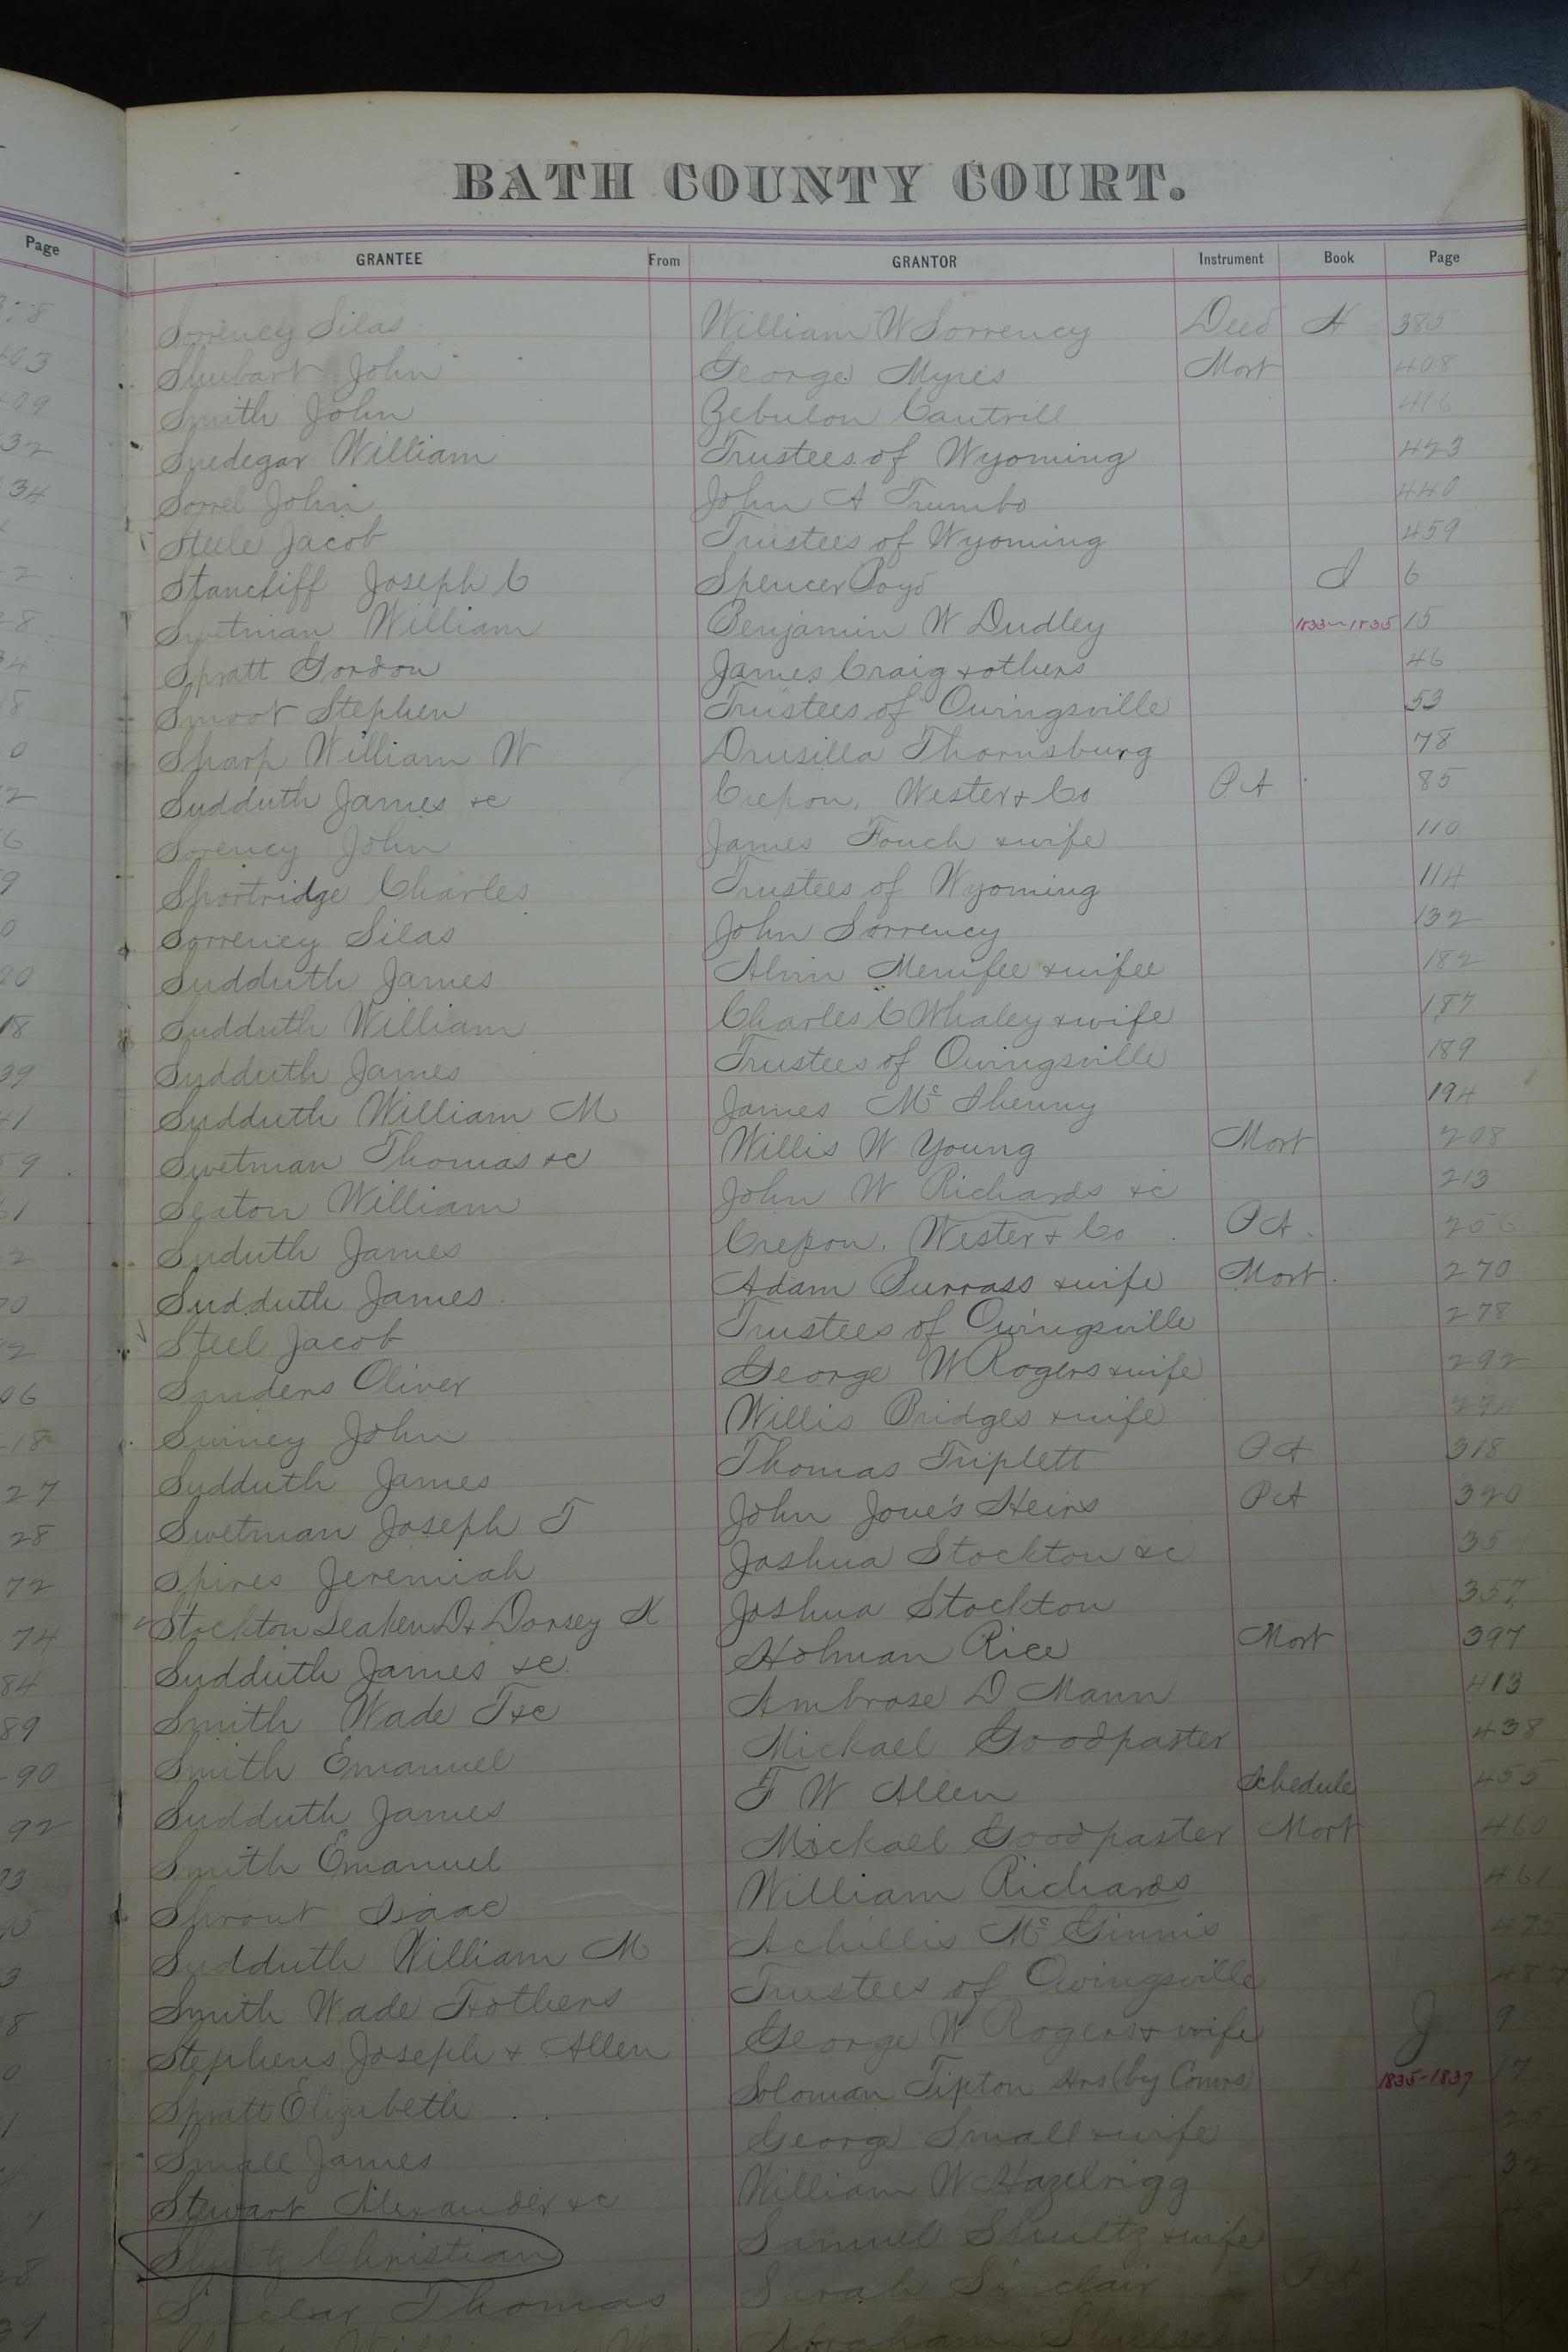 BATH COUNTY COURT.
Page GRANTEE From GRANTOR Instrument Book Page
Sorrency Silas William W Sorrency Deed H 385
Shubart John George Myres Mort 408
Smith John Zebulon Cantrill 416
Snedegar William Trustees of Wyoming 423
Sorrel John John A Trumbo 440
Steele Jacob Trustees of Wyoming 459
Stancliff Joseph C Spencer Boyd I 6
Swetman William Benjamin W Dudley 1833-1835 15
Spratt Gordon James Craig & others 46
Smoot Stephen Trustees of Owingsville 53
Sharp William W Drusilla Thornsburg 78
Sudduth James &c Crepon, Wester & Co P A 85
Sorrency John James Fouch & wife 110
Shortridge Charles Trustees of Wyoming 114
Sorrency Silas John Sorrency 132
Sudduth James Alvin Menifee & wifee 182
Sudduth William Charles C Whaley & wife 187
Sudduth James Trustees of Owingsville 189
Sudduth William M James Mc Ihenny 194
Swetman Thomas &c Willis W Young Mort 208
Seaton William John W Richards &c 213
Suduth James Crepon, Wester & Co P A 256
Sudduth James Adam Burrass & wife Mort 270
Steel Jacob Trustees of Owingsville 278
Sanders Oliver George W Rogers & wife 292
Swiney John Willis Bridges & wife 294
Sudduth James Thomas Triplett P A 318
Swetman Joseph T John Jone's Heirs P A 320
Spires Jeremiah Joshua Stockton &c
Stockton Seaken D & Dorsey K Joshua Stockton 357
Sudduth James &c Holman Rice Mort 397
Smith Wade T &c Ambrose D Mann 413
Smith Emanuel Mickael Goodpaster 438
Sudduth James F W Allen Schedule 455
Smith Emanuel Mickael Goodpaster Mort 460
Sprout Isaac William Richards 461
Sudduth William M Achillis Mc Ginnis
Smith Wade T & others Trustees of Owingsville
Stephens Joseph & Allen George W Rogers & wife J 9
Spratt Elizabeth Soloman Tipton Hrs (by Comrs) 1835-1837 17
Small James George Small & wife
Stewart Alexander &c William W Hazelrigg
Shultz Christian Samuel Shultz & wife
Sinclar Thomas Sarah Sinclair P A
Abraham